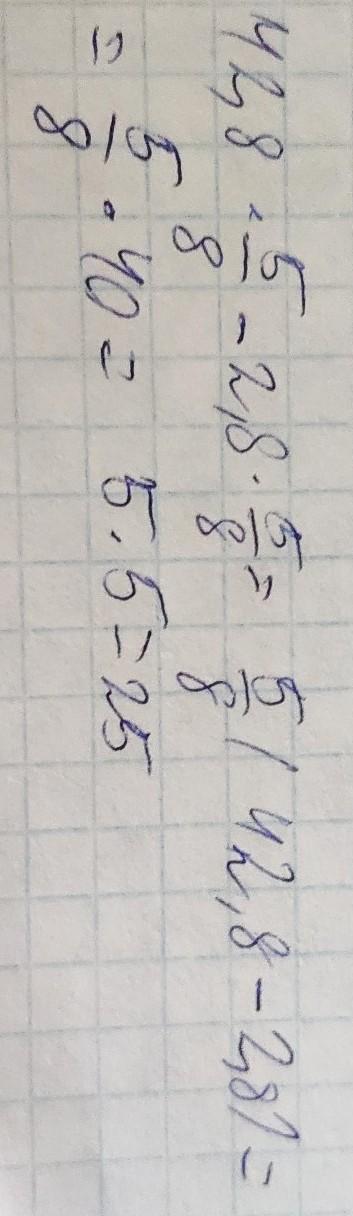 42,8 · 5/8 - 2,8 · 5/8 = 5/8 (42,8 - 2,8) =
= 5/8 · 40 = 5 · 5 = 25